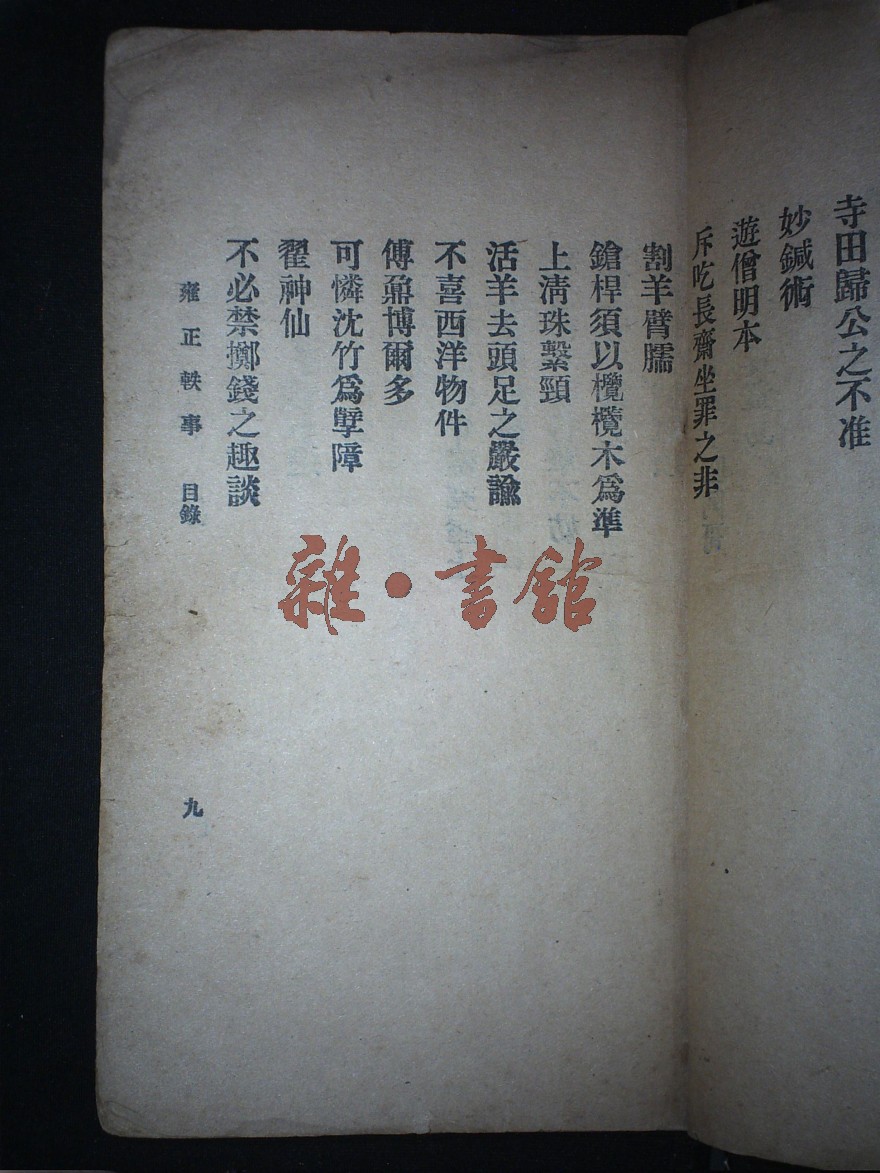 寺田歸公之不准
妙鍼術
遊僧明本
斥吃長齋坐罪之非
割羊臂臑
鎗桿須以欖欖木爲準
上淸珠繫頸
活羊去頭足之嚴諭
不喜西洋物件
傅鼐博爾多
可憐沈竹爲孼障
翟神仙
不必禁擲錢之趣談
雍正軼事 目錄
九
雜·書館